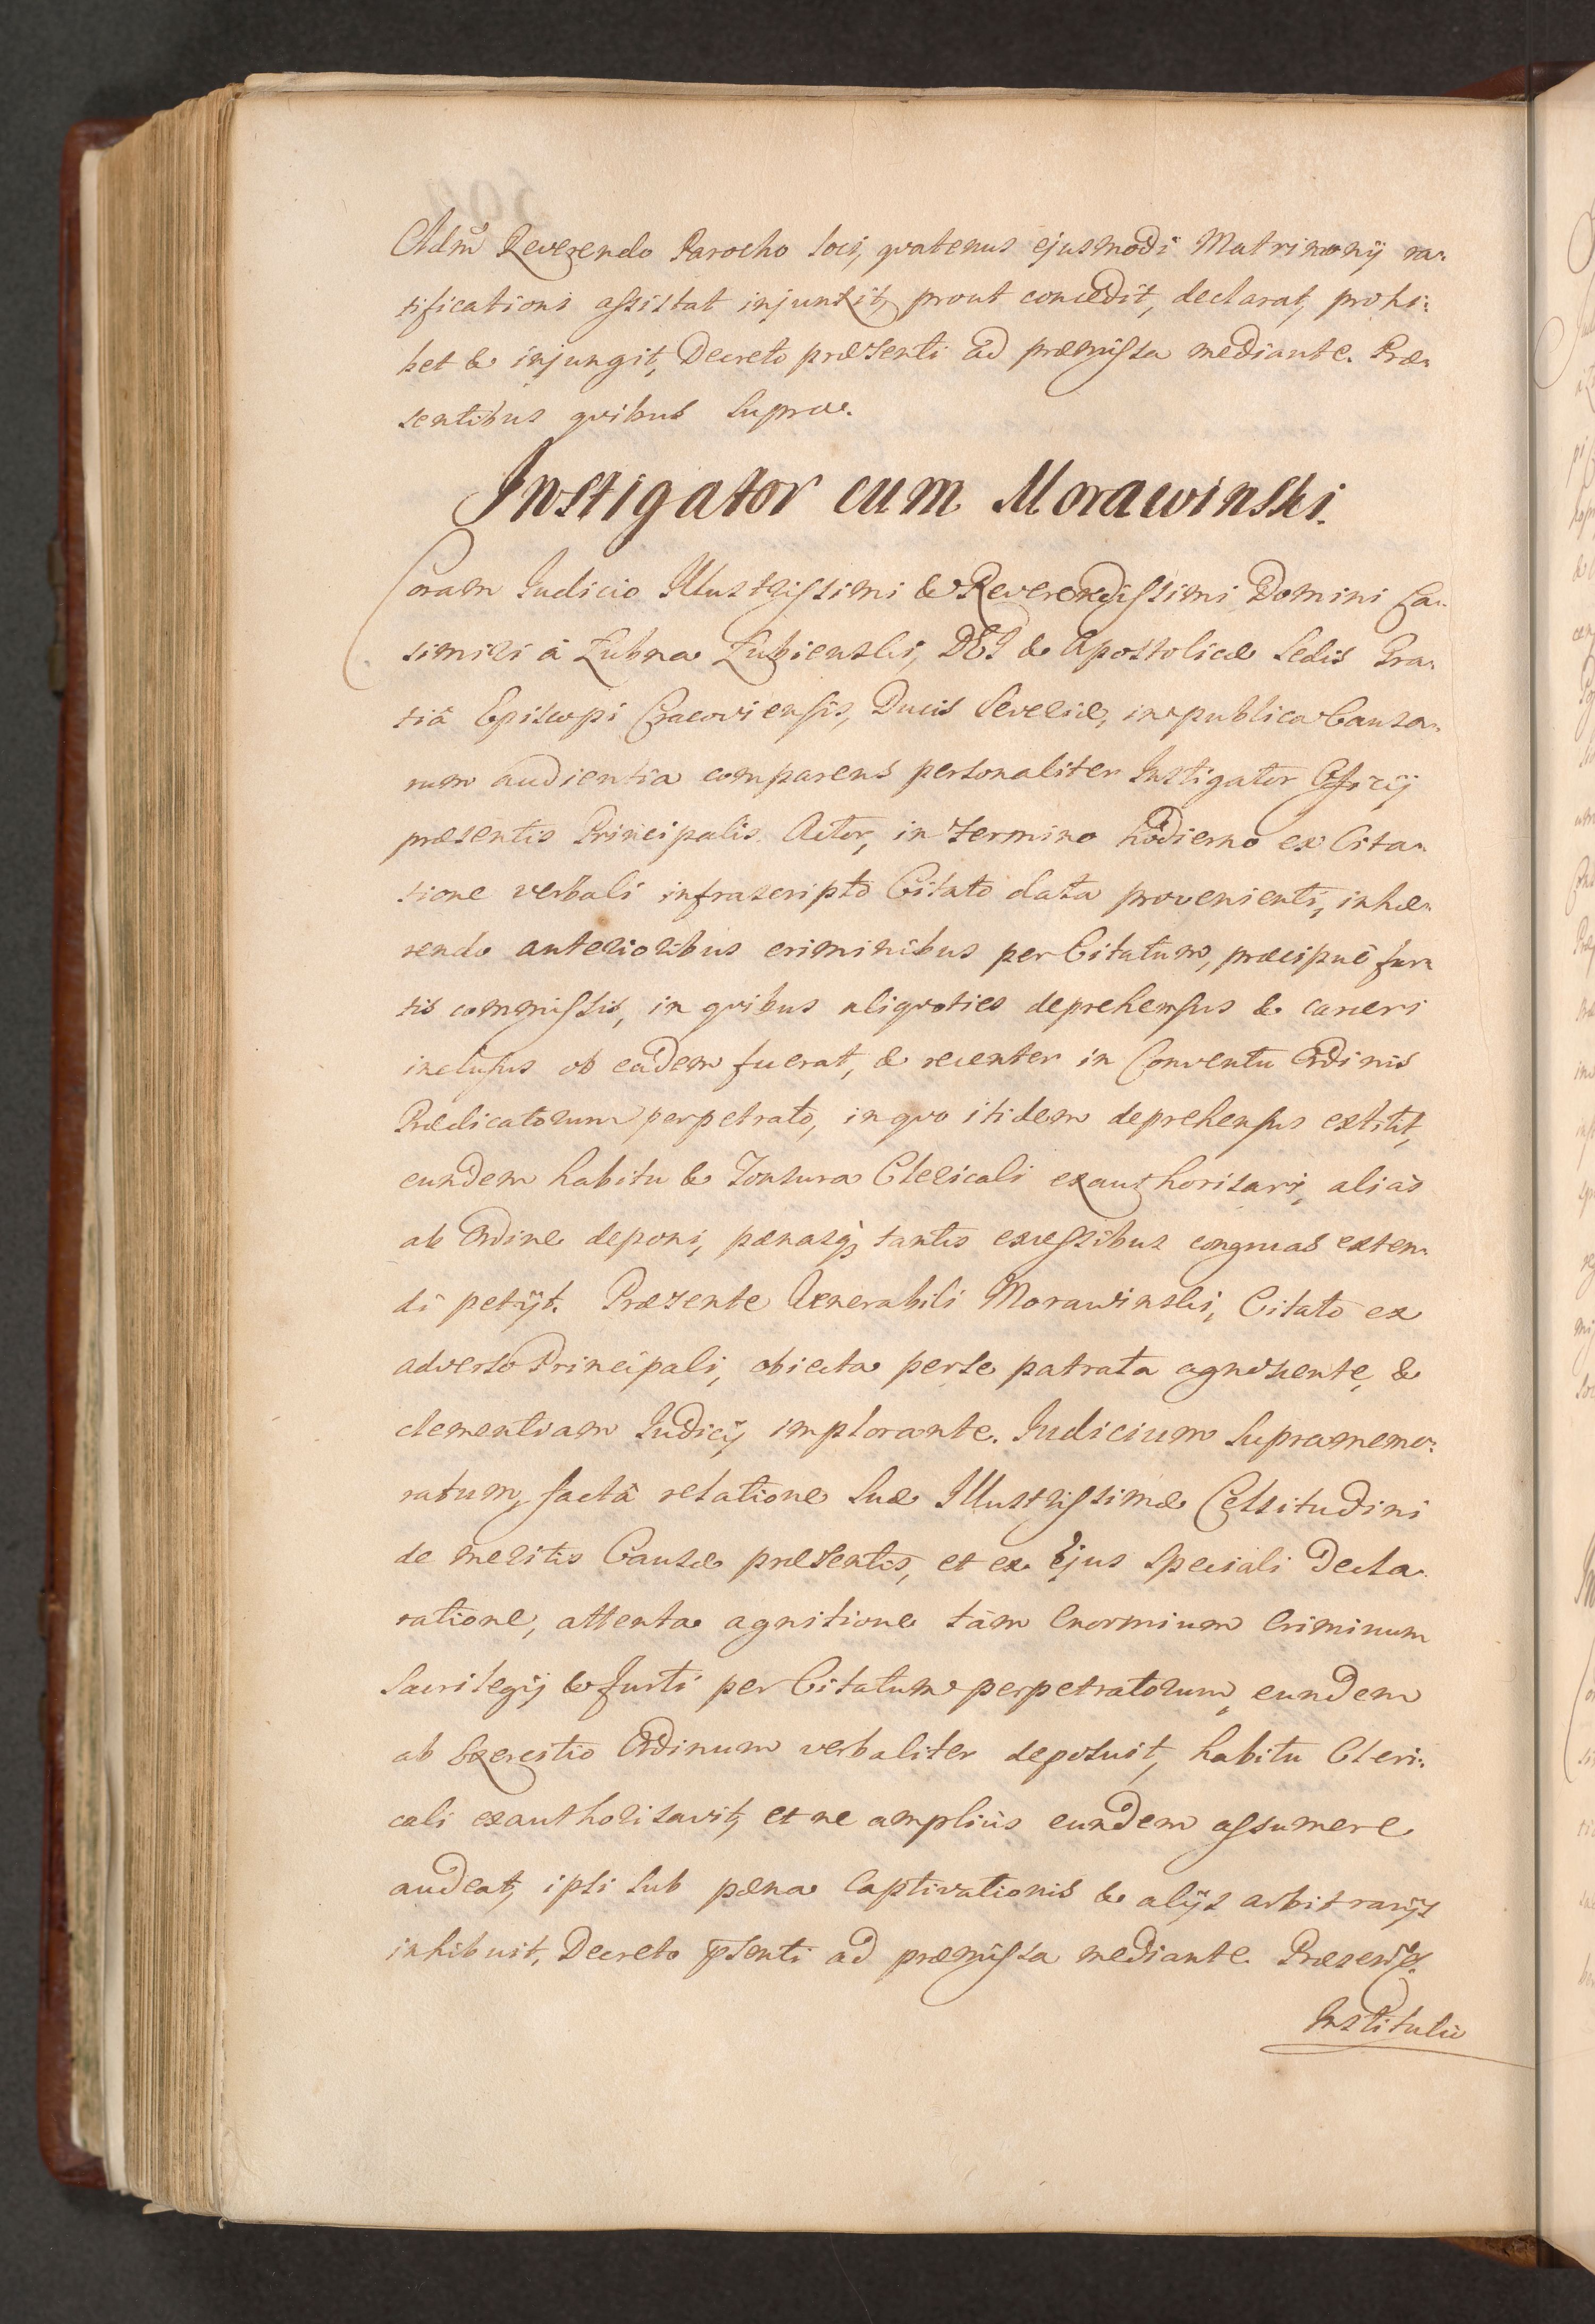 Adm Reverendo Parocho loci, qvatenus ejusmodi Matrimonij ra:
tificationi assistat injunxit, prout concedit, declarat, prohi:
bet & injungit, Decreto præsenti ad præmissa mediante. Præ:
sentibus qvibus supra.
Instigator cum Morawinski.
Coram Iudicio Illustrissimi & Reverendissimi Domini Ca:
simiri à Łubna Łubienski, DEI & Apostolicæ Sedis Gra:
tiâ Episcopi Cracoviensis, Ducis Severiæ, in publica Causa:
rum audientia comparens personaliter Instigator Officij
præsentis Principalis Actor, in termino hodierno ex Cita:
tione verbali infrascripto Citato data provenienti, inhæ:
rendo anterioribus criminibus per Citatum, præcipuè fur:
tis commissis, in qvibus aliqvoties deprehensus & carceri
inclusus ob eadem fuerat, & recenter in Conventu Ordinis
Prædicatorum perpetrato, in qvo itidem deprehensus extitit,
eundem habitu & Tonsura Clericali exauthorisari, alias
ab Ordine deponi, pænasq; tantis excessibus congruas exten:
di petijt. Præsente Venerabili Morawinski, Citato ex
adverso Principali, obiecta per se patrata agnoscente, &
clementiam Iudicij implorante. Iudicium supramemo:
ratum, factâ relatione suæ Illustrissimæ Celsitudini
de meritis Causæ præsentis, et ex Ejus speciali Decla:
ratione, attenta agnitione tàm enormium Criminum
Sacrilegij & furti per Citatum perpetratorum, eundem
ab Exercitio Ordinum verbaliter deposuit, habitu Cleri:
cali exauthorisavit, et ne ampliùs eundem assumere
audeat, ipsi sub pæna Captivationis & alijs arbitrarijs
inhibuit, Decreto pśenti ad præmissa mediante. Præsen̄:
Institutio